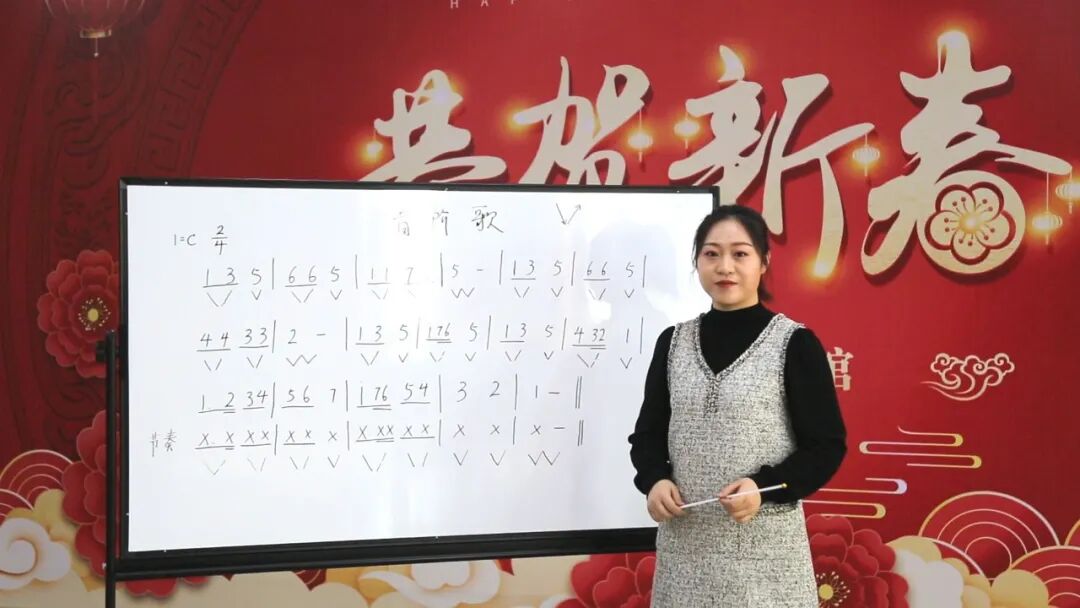 恭贺新春
音阶歌
1=C 2/4
1 3 5 | 6 6 5 | 1 1 7 | 5 - | 1 3 5 | 6 6 5 |
4 4 3 3 | 2 - | 1 3 5 | 1 7 6 5 | 1 3 5 | 4 3 2 1 |
1. 2 3 4 | 5 6 7 | i 7 6 5 4 | 3 2 | 1 - ||
节奏 X. X X X | X X X | X X X X X | X X | X - ||
馆